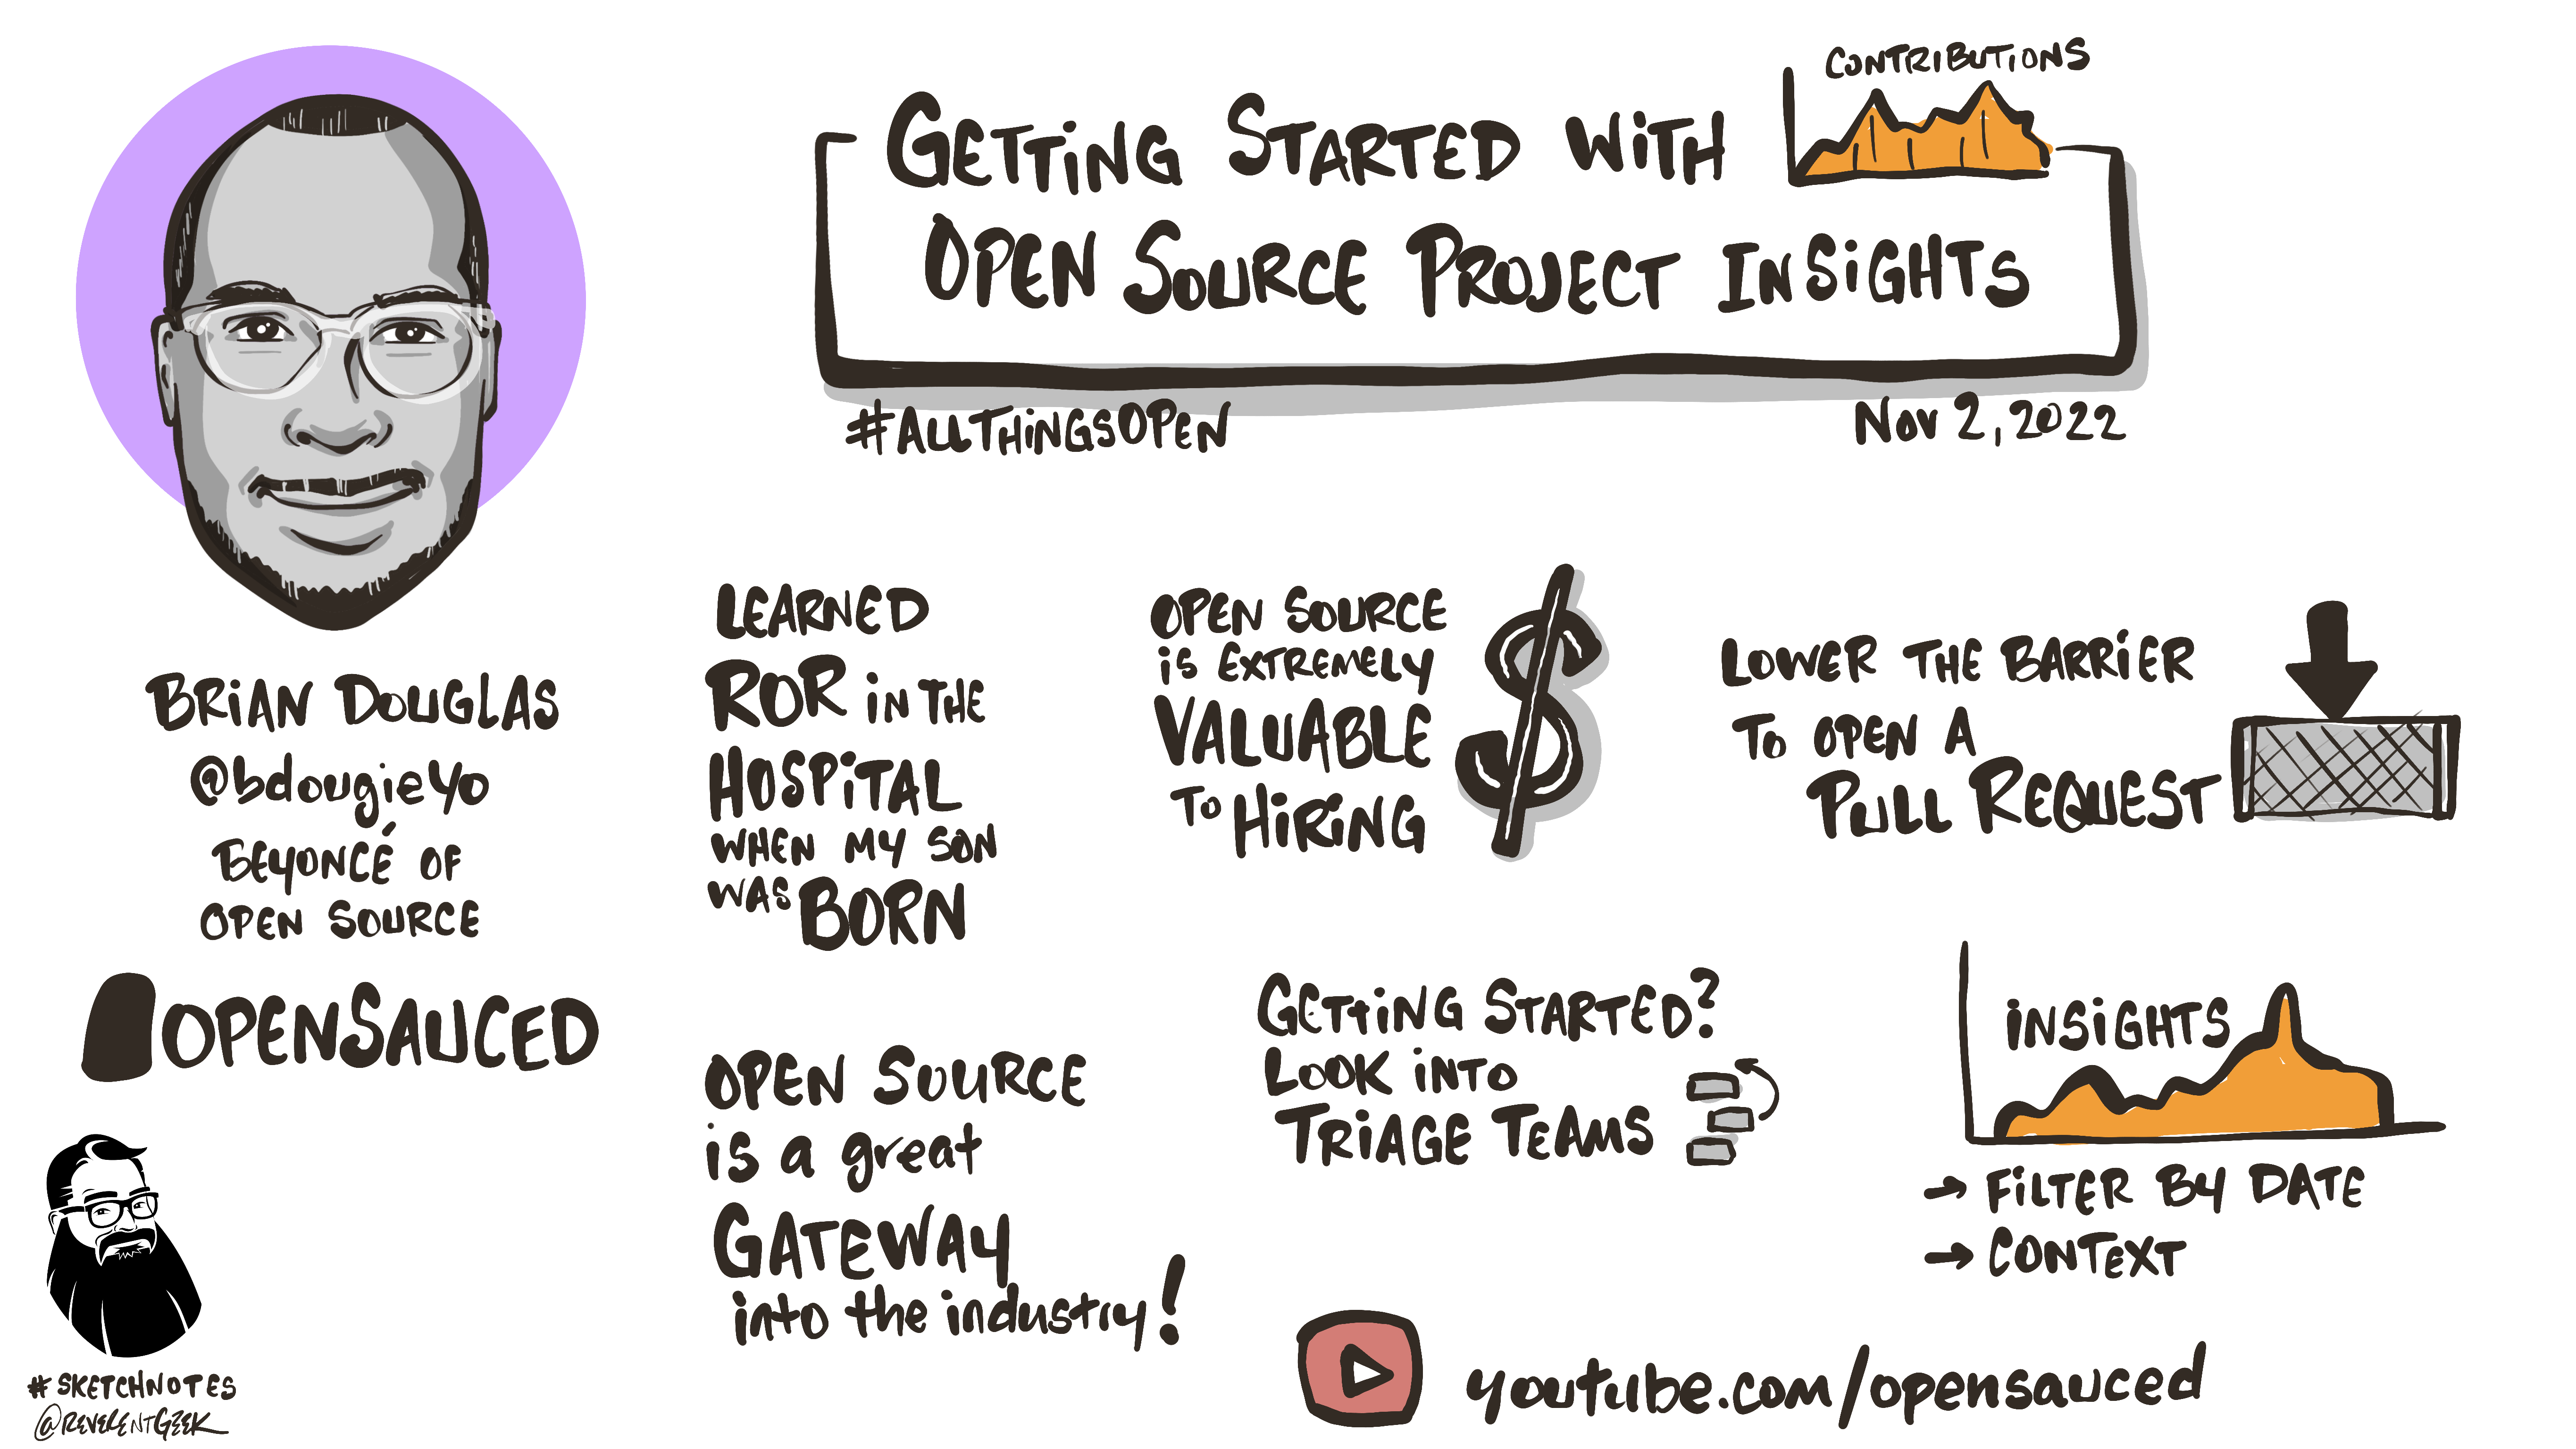 CONTRIBUTIONS
GETTING STARTED WITH
OPEN SOURCE PROJECT INSIGHTS
#ALLTHINGSOPEN
NOV 2, 2022
BRIAN DOUGLAS
@bdougieYO
BEYONCÉ OF
OPEN SOURCE
OPENSAUCED
#SKETCHNOTES
@REVERENTGEEK
LEARNED
ROR IN THE
HOSPITAL
WHEN MY SON
WAS BORN
OPEN SOURCE
IS EXTREMELY
VALUABLE
TO HIRING
$
LOWER THE BARRIER
TO OPEN A
PULL REQUEST
OPEN SOURCE
is a great
GATEWAY
into the industry!
GETTING STARTED?
LOOK INTO
TRIAGE TEAMS
INSIGHTS
→ FILTER BY DATE
→ CONTEXT
youtube.com/opensauced